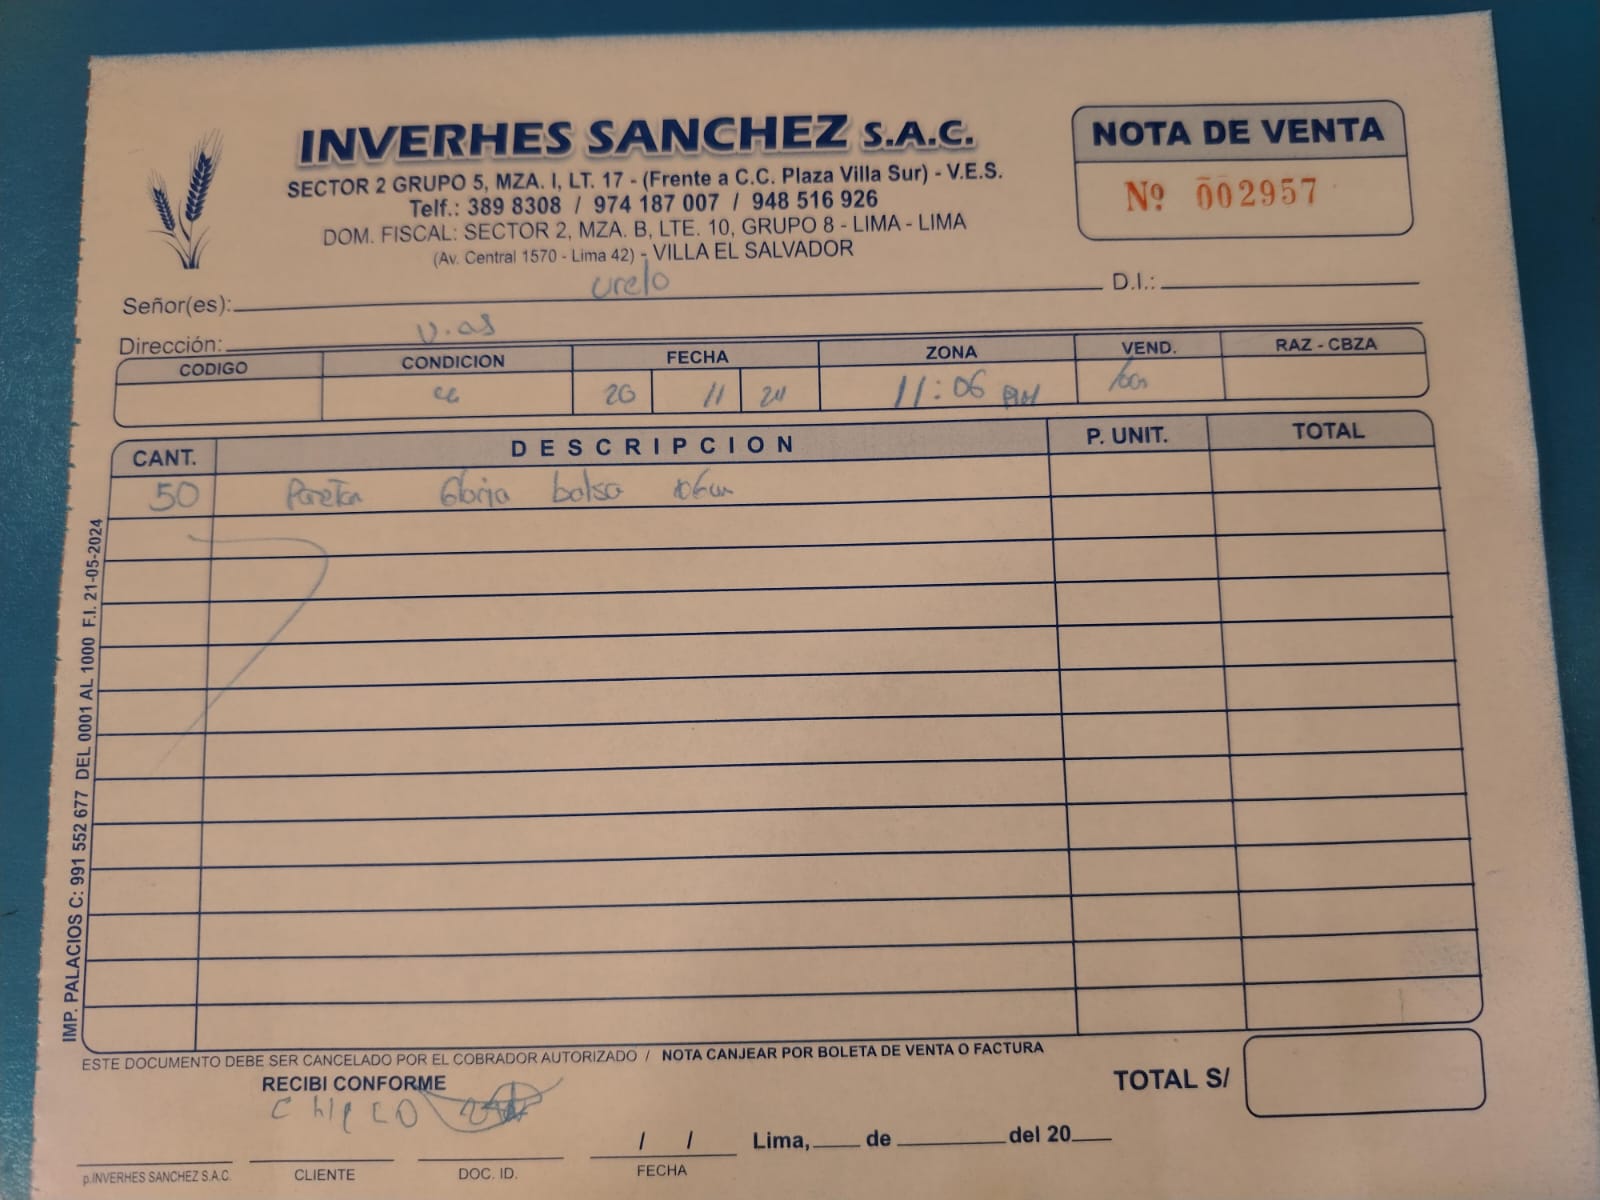 INVERHES SANCHEZ S.A.C.
SECTOR 2 GRUPO 5, MZA. I, LT. 17 - (Frente a C.C. Plaza Villa Sur) - V.E.S.
Telf.: 389 8308 / 974 187 007 / 948 516 926
DOM. FISCAL: SECTOR 2, MZA. B, LTE. 10, GRUPO 8 - LIMA - LIMA
(Av. Central 1570 - Lima 42) - VILLA EL SALVADOR
NOTA DE VENTA
Nº 002957
Señor(es): D.I.:
Dirección:
CODIGO CONDICION FECHA ZONA VEND. RAZ - CBZA
20 11 24 11:06
CANT. DESCRIPCION P. UNIT. TOTAL
50 Gloria bolsa
IMP. PALACIOS C: 991 552 677 DEL 0001 AL 1000 F.I. 21-05-2024
ESTE DOCUMENTO DEBE SER CANCELADO POR EL COBRADOR AUTORIZADO / NOTA CANJEAR POR BOLETA DE VENTA O FACTURA
RECIBI CONFORME TOTAL S/
/ / Lima, de del 20
p.INVERHES SANCHEZ S.A.C. CLIENTE DOC. ID. FECHA